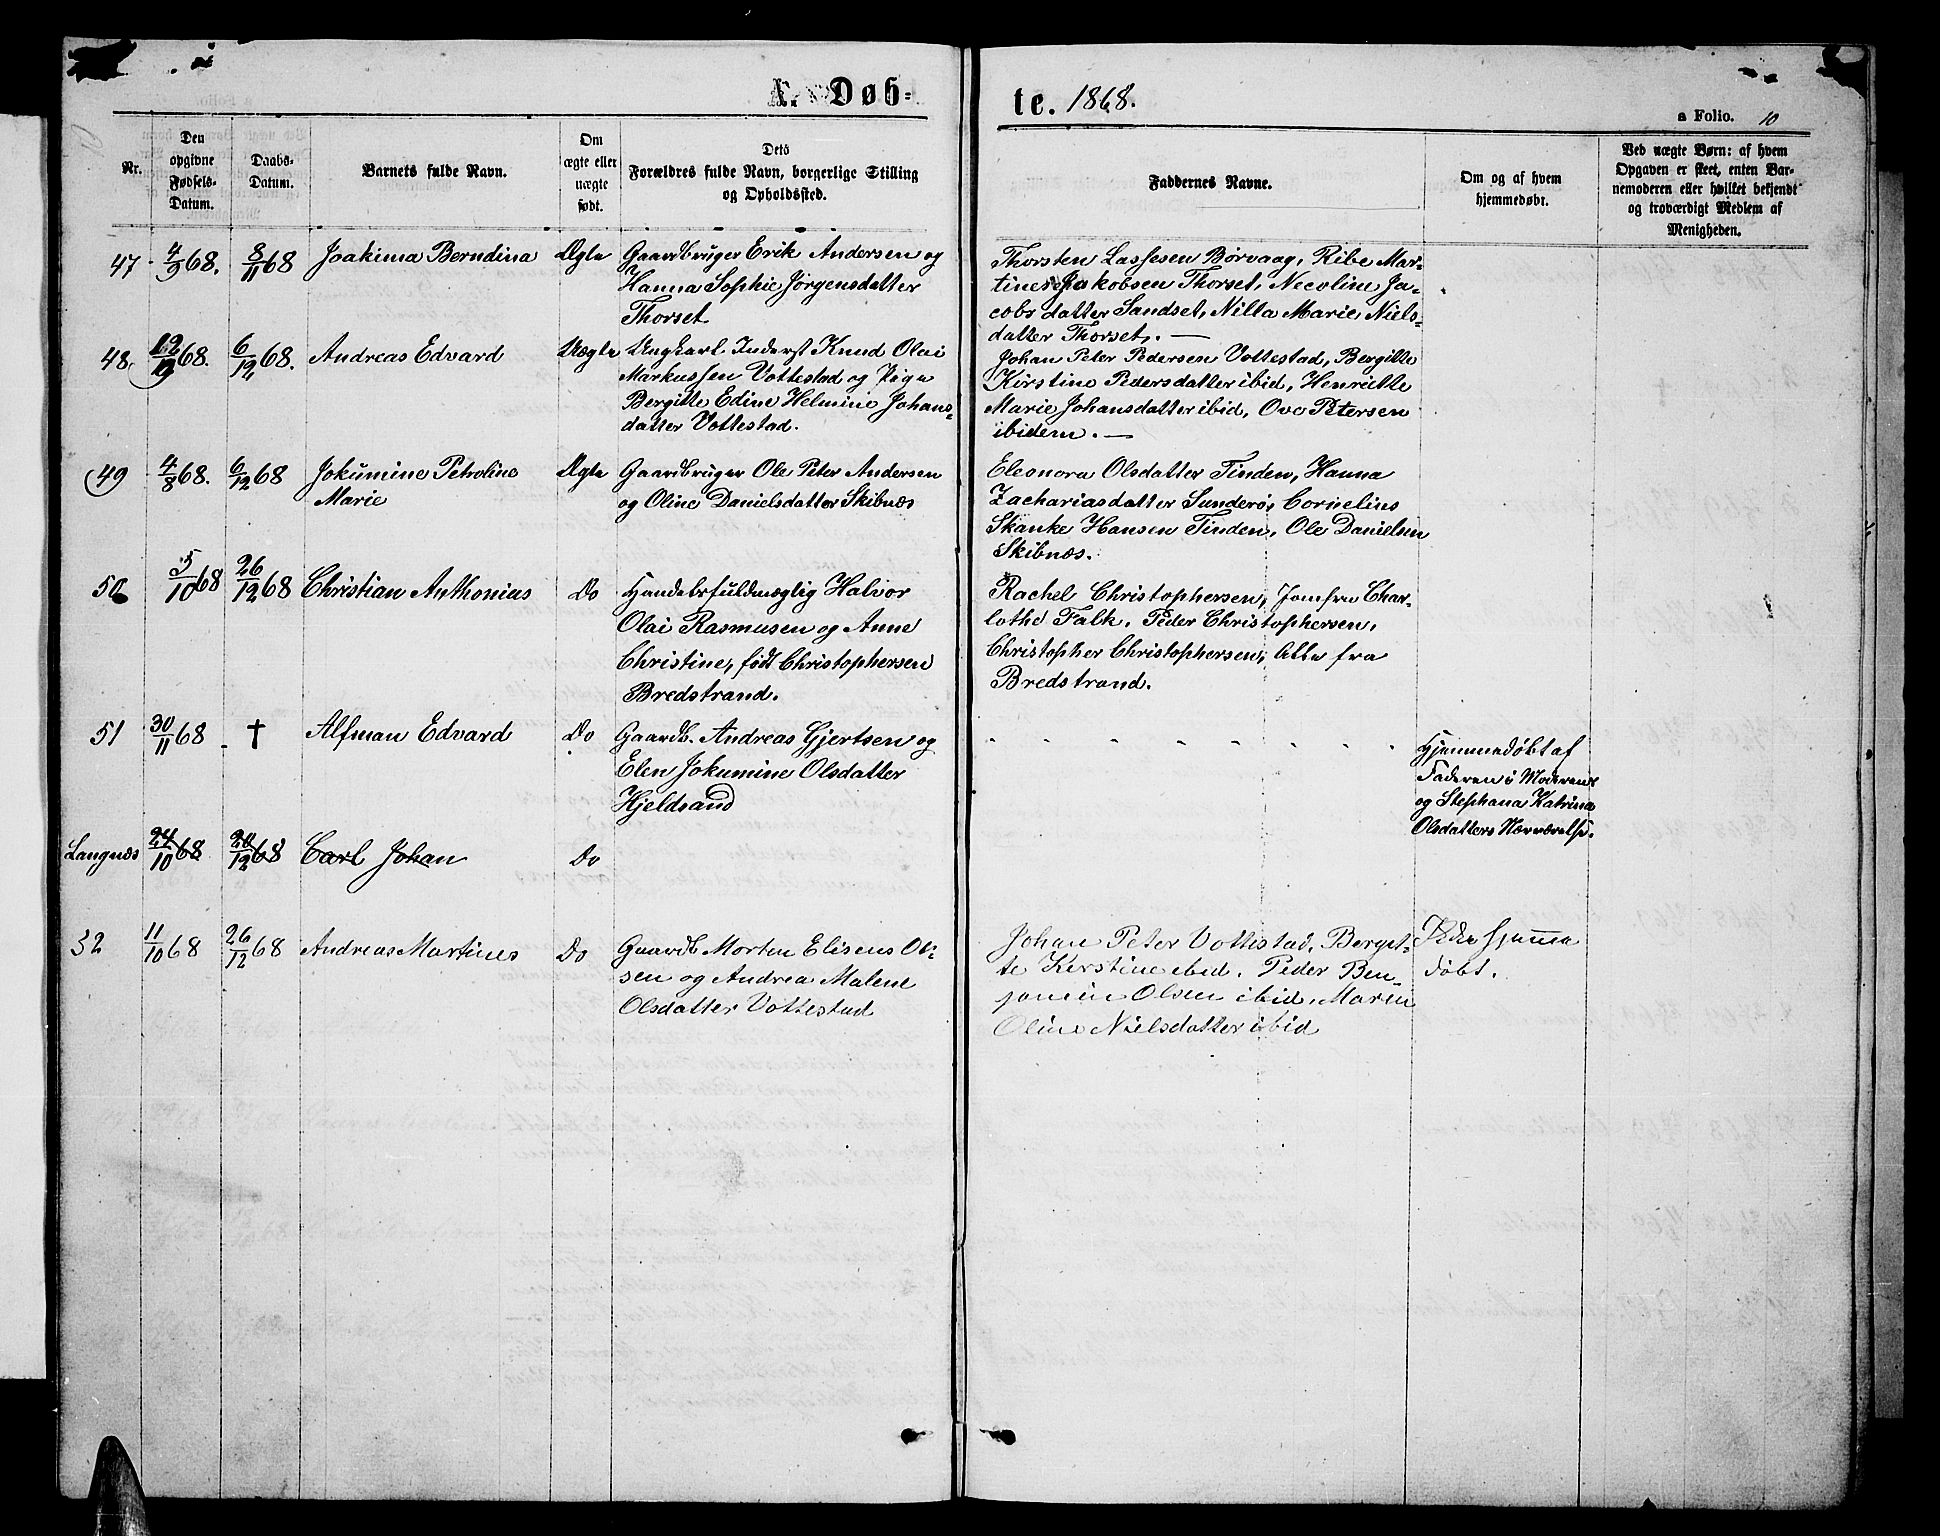 A. Døb-
te. 1868.
a Folio. 10
Nr.
Den
opgivne
Fødsels-
Datum.
Daabs-
Datum.
Barnets fulde Navn.
Om
ægte eller
uægte
født.
Dets
Forældres fulde Navn, borgerlige Stilling
og Opholdssted.
Faddernes Navne.
Om og af hvem
hjemmedøbt.
Ved uægte Børn: af hvem
Opgaven er skeet, enten Bar-
nemoderen eller hvilket bekjendt
og troværdigt Medlem af
Menigheden.
47 4/9 68. 8/11 68 Joakima Berndina Ægte
Gaardbruger Erik Andersen og
Hanna Sophie Jørgensdatter
Thorset
Thorsten Lassesen Børvaag, Ribe Mar-
tines Jakobsen Thorset, Necoline Ja-
cobsdatter Sandset, Nilla Marie Niels-
datter Thorset. —
48 68. 6/12 68. Andreas Edvard Uægte
Ungkarl Inderst Knud Olai
Markussen Vottestad og Pige
Bergitte Edine Helmine Johans-
datter Vottestad.
Johan Peter Pedersen Vottestad, Bergitte
Kirstine Pedersdatter ibid, Henriette
Marie Johansdatter ibid, Ove Petersen
ibidem. —
49 4/8 68. 6/12 68 Jokumine Petroline
Marie
Ægte
Gaardbruger Ole Peter Andersen
og Oline Danielsdatter Skibnæs
Eleonora Olsdatter Tinden, Hanna
Zachariasdatter Sunderø, Cornelius
Skanke Hansen Tinden, Ole Danielsen
Skibnæs.
50 5/10 68 26/12 68 Christian Anthonius Do
Handelsfuldmægtig Halvor
Olai Rasmusen og Anne
Christine, født Christophersen
Bredstrand.
Rachel Christophersen, Jomfru Char-
lothe Falk, Peder Christophersen,
Christopher Christophersen, Alle fra
Bredstrand.
51 30/11 68 † Alfman Edvard Do
Gaardb. Andreas Gjertsen og
Elen Jokumine Olsdatter
Hjeldsand
Hjemmedøbt af
Faderen i Moderens
og Stephana Katrina
Olsdatters Nærværelse.
Langnæs 24/10 68 20/12 68 Carl Johan Do
32 11/10 68 26/12 68 Andreas Martines Do
Gaardb Morten Elisens Ol-
sen og Andrea Malene
Olsdatter Vottestad
Johan Peter Vottestad, Bergit-
te Kerstine ibid. Peder Ben-
jamin Olsen ibid, Maren
Oline Nielsdatter ibid
Ikke hjemme
døbt.